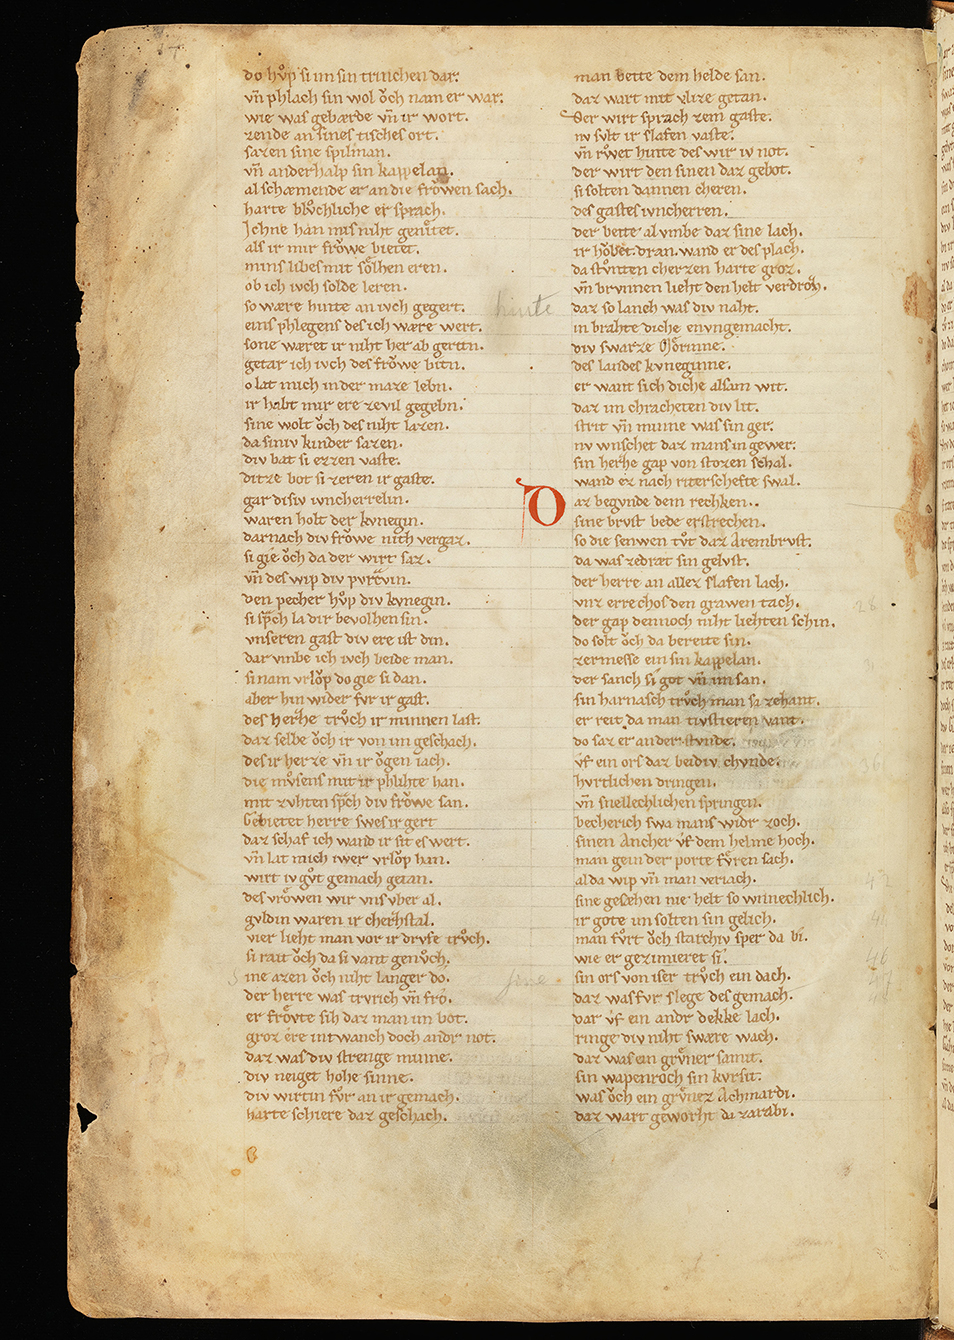 do hůp si im sin trinchen dar.
vñ phlach sin wol ǒch nam er war.
wie was gebærde vñ ir wort.
zende an sines tisches ort.
sazen sine spilman.
vñ anderhalp sin kappelan.
al schæmende er an die frǒwen sach.
harte blůchliche er sprach.
Ichne han mis niht genůtet.
als ir mir frǒwe bietet.
mins libes mit sǒlhen eren.
ob ich iuch solde leren.
so wære hinte an iuch gegert.
eins phlegens des ich wære wert.
sone wæret ir niht her ab geritn.
getar ich iuch des frǒwe bitn.
o lat mich in der maze lebn.
ir habt mir ere ze vil gegebn.
sine wolt ǒch des niht lazen.
da siniv kinder sazen.
div bat si ezzen vaste.
ditze bot si zeren ir gaste.
gar disiv iuncherrelin.
waren holt der kvnegin.
darnach div frǒwe nith vergaz.
si gie ǒch da der wirt saz.
vñ des wip div pvrcvin.
den pecher hůp div kvnegin.
si sp̄ch la dir bevolhen sin.
vnseren gast div ere ist din.
dar vmbe ich iuch beide man.
si nam vrlǒp do gie si dan.
aber hin wider fvr ir gast.
des herze trůch ir minnen last.
daz selbe ǒch ir von im geschach.
des ir herze vñ ir ǒgen iach.
die můsens mit ir phlihte han.
mit zvhten sp̄ch div frǒwe san.
Gebietet herre swes ir gert
daz schaf ich wand ir sit es wert.
vñ lat mich iwer vrlǒp han.
wirt iv gůt gemach getan.
des vrǒwen wir vns vber al.
gvldin waren ir cherzstal.
vier lieht man vor ir drvfe trůch.
si rait ǒch da si vant genůch.
sine azen ǒch niht langer do.
der herre was trvrich vñ fro.
er frǒvte sih daz man im bot.
groz ere in twanch doch andr not.
daz was div strenge minne.
div neiget hohe sinne.
div wirtin fůr an ir gemach.
harte schiere daz geschach.
man bette dem helde san.
daz wart mit vlize getan.
Der wirt sprach zem gaste.
nv svlt ir slafen vaste.
vñ růwet hinte des wir iv not.
der wirt den sinen daz gebot.
si solten dannen cheren.
des gastes ivncherren.
der bette al vmbe daz sine lach.
ir hǒbet dran. wand er des plach.
da stůnten cherzen harte groz.
vñ brvnnen lieht den helt verdroz.
daz so lanch was div naht.
in brahte diche en vngemacht.
div swarze Mǒrinne.
des landes kvneginne.
er want sich diche alsam wit.
daz im chracheten div lit.
strit vñ minne was sin ger.
nv wnschet daz mans in gewer.
sin herze gap von stozen schal.
wand ez nach riterschefte swal.
Daz begvnde dem rechken.
sine brvst bede erstrechen.
so die senwen tůt daz Arembrvst.
da was ze dræt sin gelvst.
der herre an allez slafen lach.
vnz er rechos den grawen tach.
der gap dennoch niht liehten schin.
do solt ǒch da bereite sin.
zer messe ein sin kappelan.
der sanch si got vñ im san.
sin harnasch trůch man sa zehant.
er reit da man tivstieren vant.
do saz er an der stvnde.
vf ein ors daz beidiv chvnde.
hvrtlichen dringen.
vñ snellechlichen springen.
becherich swa mans widr zoch.
sinen Ancher vf dem helme hoch.
man gein der porte fůren sach.
alda wip vñ man veriach.
sine gesehen nie helt so winnechlich.
ir gote im solten sin gelich.
man fůrt ǒch starchiv sper da bi.
wie er gezimieret si.
sin ors von iser trůch ein dach.
daz was fvr slege des gemach.
dar vf ein andr dekke lach.
ringe div niht swære wach.
daz was ein grůner samit.
sin wapenroch sin kvrsit.
was ǒch ein grůnez Achmardi.
daz wart geworht da zarabi.